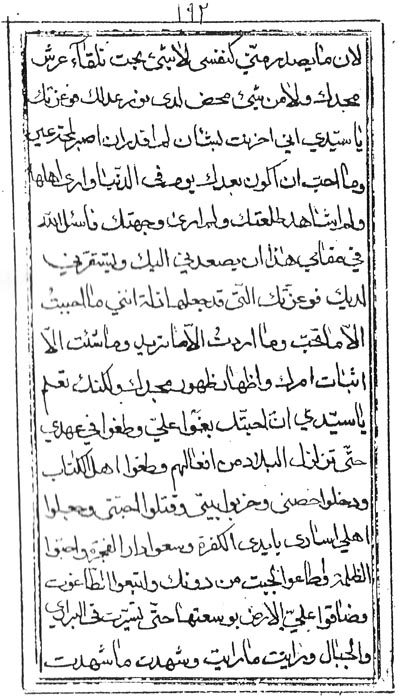 ١٩٢
لان ما يصدر مني كنفسي لا شئ بحت تلقاء عرش
مجدك ولا من شئ محض لدى نور عدلك فوعزتك
يا سيدي اني احزنت بشان لم اقدر ان اصبر
وما احب ان اكون بعدك يوم في الدنيا وارى اهلها
ولم اشاهد طلعتك ولم ارى وجهتك فاسئل الله
في مقامي هذا ان يصعدني اليك وليستقربني
لديك فوعزتك التي قد جعلها انه انني ما احببت
الا ما تحب وما اردت الا ما تريد وما شئت الا
اثبات امرك واظهار ظهور مجدك ولكنك تعلم
يا سيدي ان احبتك بغوا علي وطغوا في عهدي
حتى تزلزل البلاد من افعالهم وطغوا اهل الكتاب
ودخلوا حصني وخربوا بيتي وقتلوا احبتي وجعلوا
اهلي اسارى بايدي الكفرة وسعوا دار الفجرة واحبوا
الظلمة واطاعوا الجبت من دونك واتبعوا الطاغوت
وضاقوا علي الارض بوسعتها حتى سيرت في البراري
والجبال ورايت ما رايت وشهدت ما شهدت